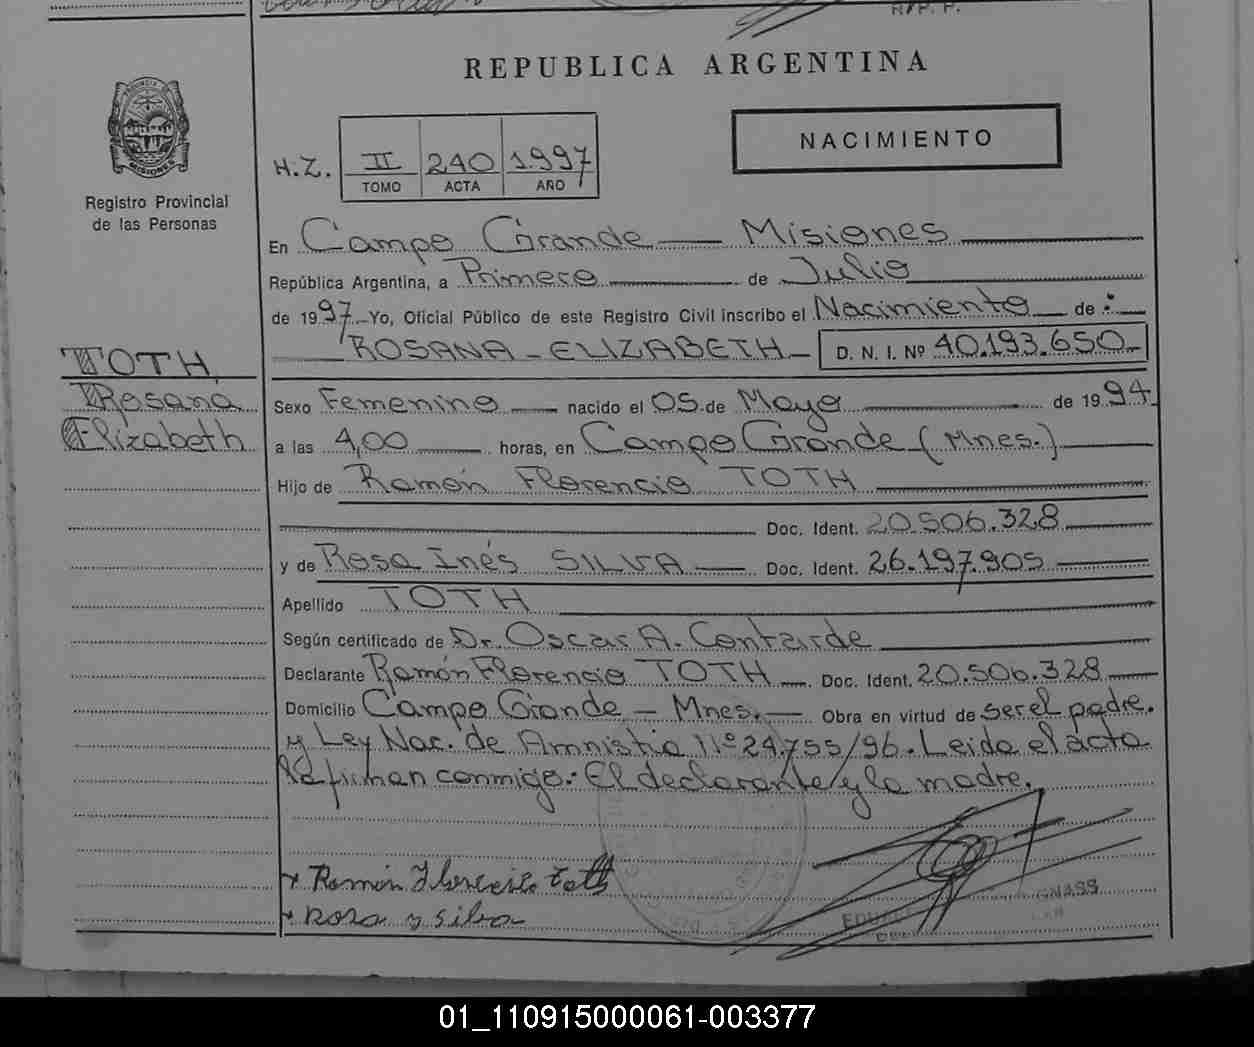 REPUBLICA ARGENTINA
NACIMIENTO
H.Z. II 240 1.997
TOMO ACTA AÑO
Registro Provincial
de las Personas
En Campo Grande Misiones
República Argentina, a Primero de Julio
de 1997 Yo, Oficial Público de este Registro Civil inscribo el Nacimiento de:
ROSANA - ELIZABETH D. N. I. Nº 40.193.650
TOTH
Rosana
Elizabeth
Sexo Femenino nacido el 05 de Mayo de 1994
a las 4,00 horas, en Campo Grande (Mnes.)
Hijo de Ramón Florencio TOTH
Doc. Ident. 20.506.328
y de Rosa Inés SILVA Doc. Ident. 26.197.905
Apellido TOTH
Según certificado de Dr. Oscar A. Contarde
Declarante Ramón Florencio TOTH Doc. Ident. 20.506.328
Domicilio Campo Grande - Mnes. - Obra en virtud de ser el padre.
y Ley Nac. de Amnistia Nº 24.755/96. Leida el acta
la firman conmigo.- El declarante y la madre.
Ramón Florencio toth
Rosa y silva
01_110915000061-003377